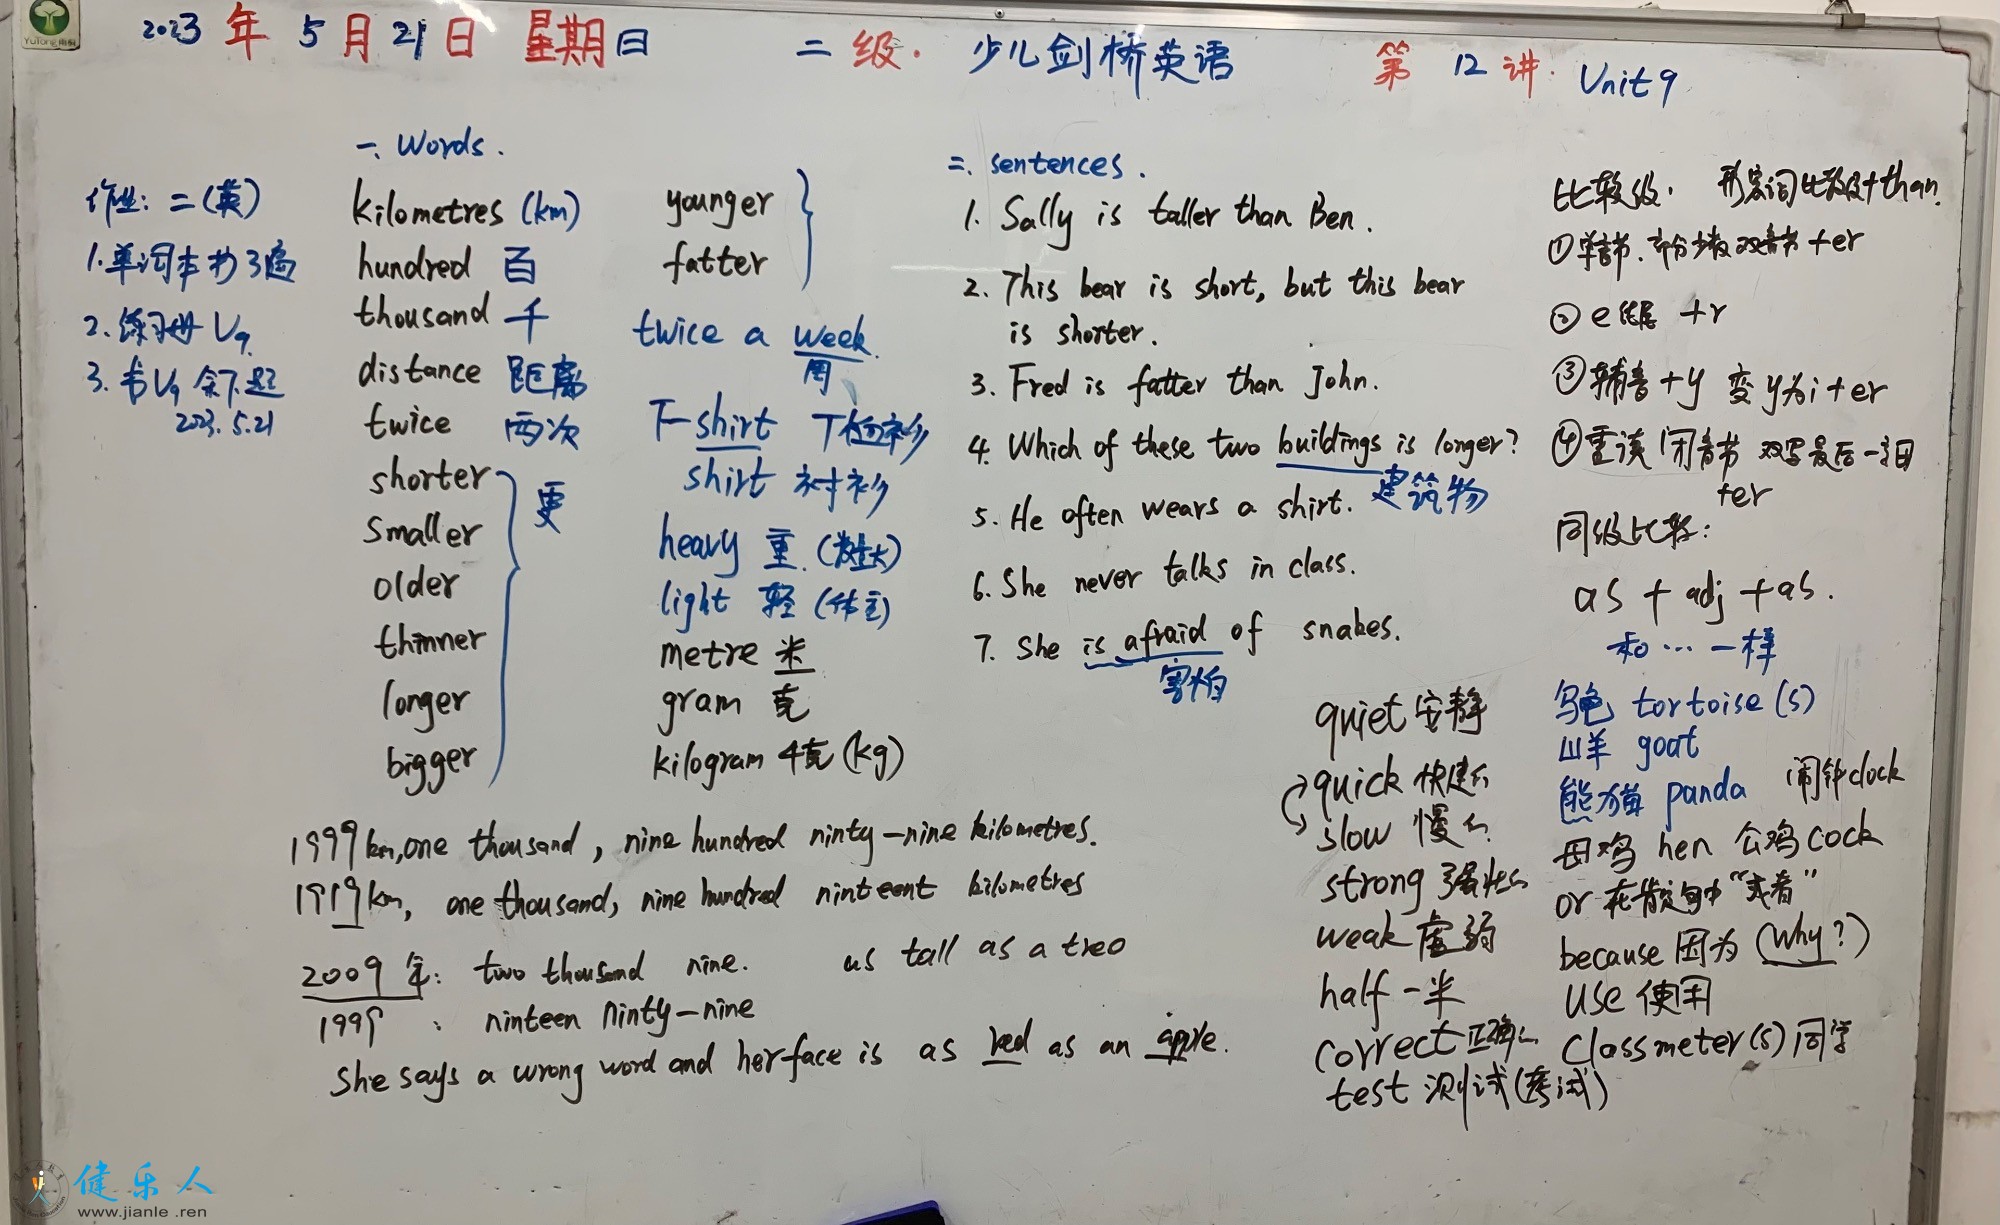 2023年5月21日 星期日 二级. 少儿剑桥英语 第12讲. Unit 9
作业: 二(英)
1.单词本抄3遍
2.练习册 U9.
3.书U9余下题
2023.5.21
一. Words.
kilometres (km)
hundred 百
thousand 千
distance 距离
twice 两次
shorter
smaller
older
thinner
longer
bigger
更
younger
fatter
twice a week.
周
T-shirt T恤衫
shirt 衬衫
heavy 重.
light 轻
metre 米
gram 克
kilogram 千克(kg)
二. sentences.
1. Sally is taller than Ben.
2. This bear is short, but this bear
is shorter.
3. Fred is fatter than John.
4. Which of these two buildings is longer?
建筑物
5. He often wears a shirt.
6. She never talks in class.
7. She is afraid of snakes.
害怕
比较级. 形容词比较级+than.
①单音节.部分少数双音节+er
② e结尾 +r
③辅音+y 变y为i+er
④重读闭音节 双写最后一字母
+er
同级比较:
as + adj + as.
和…一样
quiet 安静
quick 快速的
slow 慢的
strong 强壮的
weak 虚弱
half 一半
correct 正确的
test 测试(考试)
乌龟 tortoise(s)
山羊 goat
熊猫 panda 闹钟clock
母鸡 hen 公鸡 cock
or 在肯定句中“或者”
because 因为 (why?)
use 使用
classmeter(s) 同学
1999km,one thousand, nine hundred ninty-nine kilometres.
1919km, one thousand, nine hundred ninteent kilometres
2009年: two thousand nine. as tall as a tree
1999 : ninteen ninty-nine
She says a wrong word and her face is as red as an apple.
健乐人
www.jianle.ren